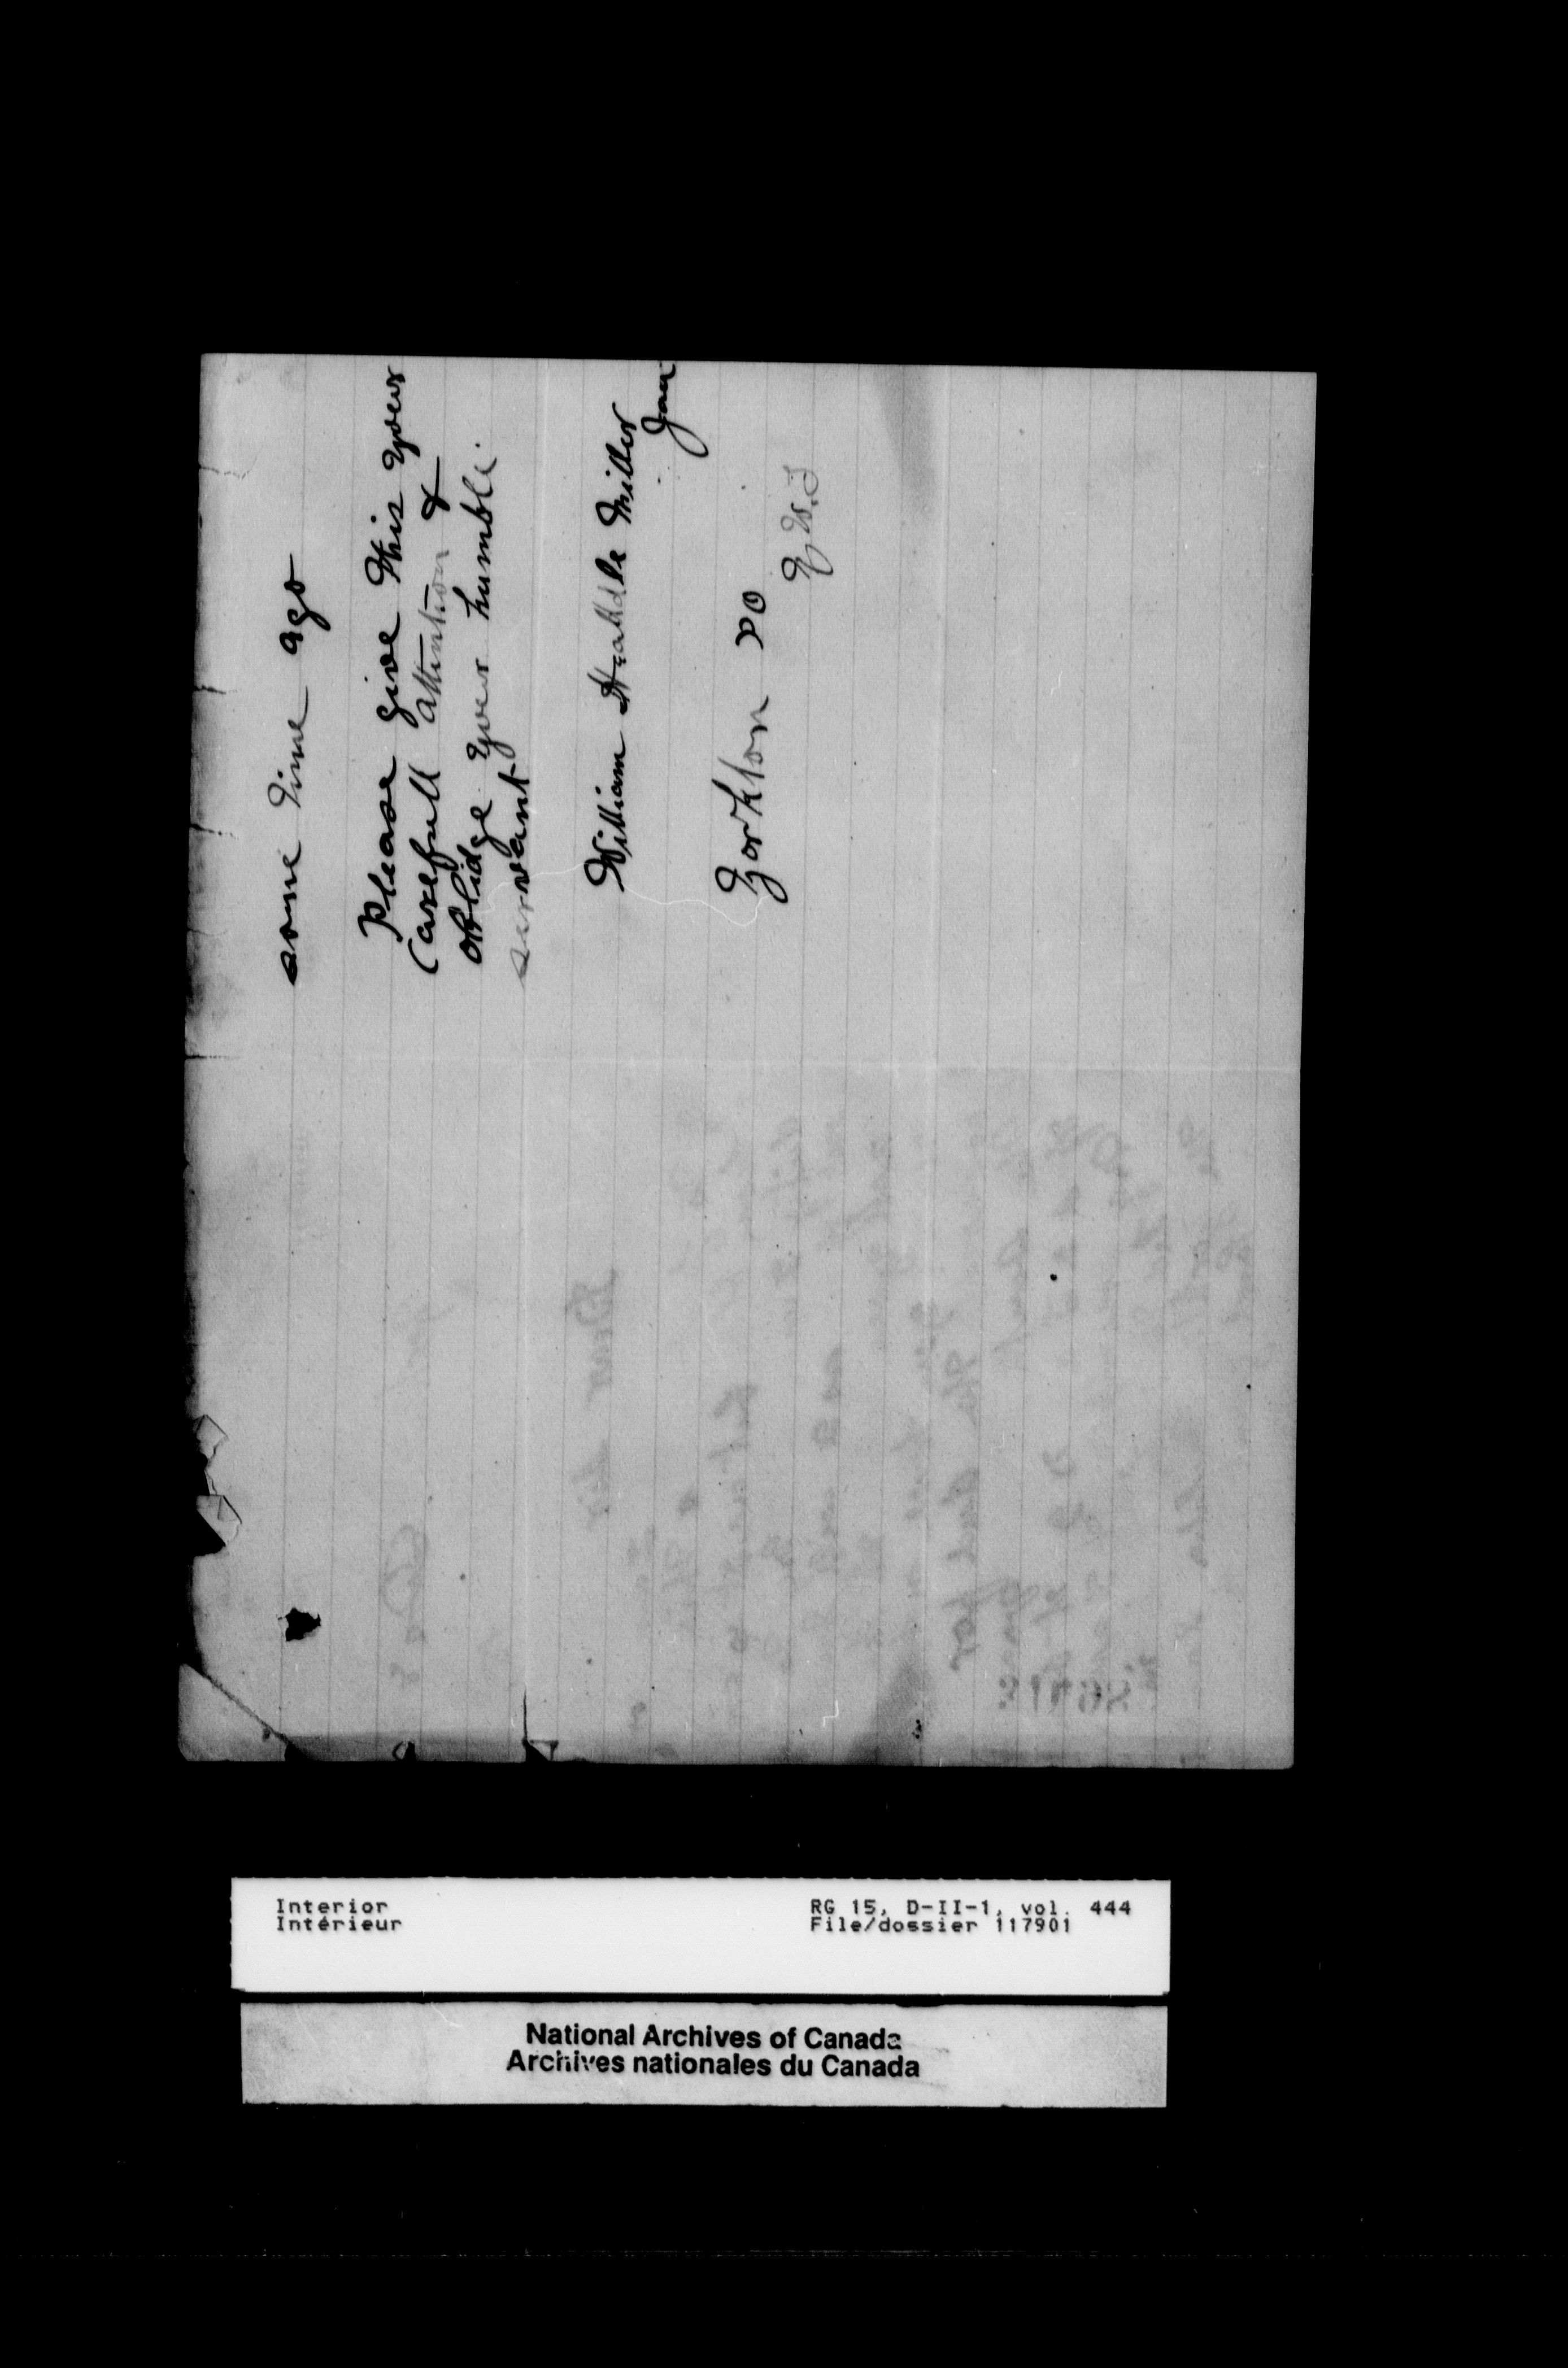 some time ago
Please give this your
Carefull attention &
oblidge your humble
servant
William Heddle Miller
Jun
Yorkton PO
N.W.T
Interior
Intérieur
RG 15, D-II-1, vol. 444
File/dossier 117901
National Archives of Canada
Archives nationales du Canada